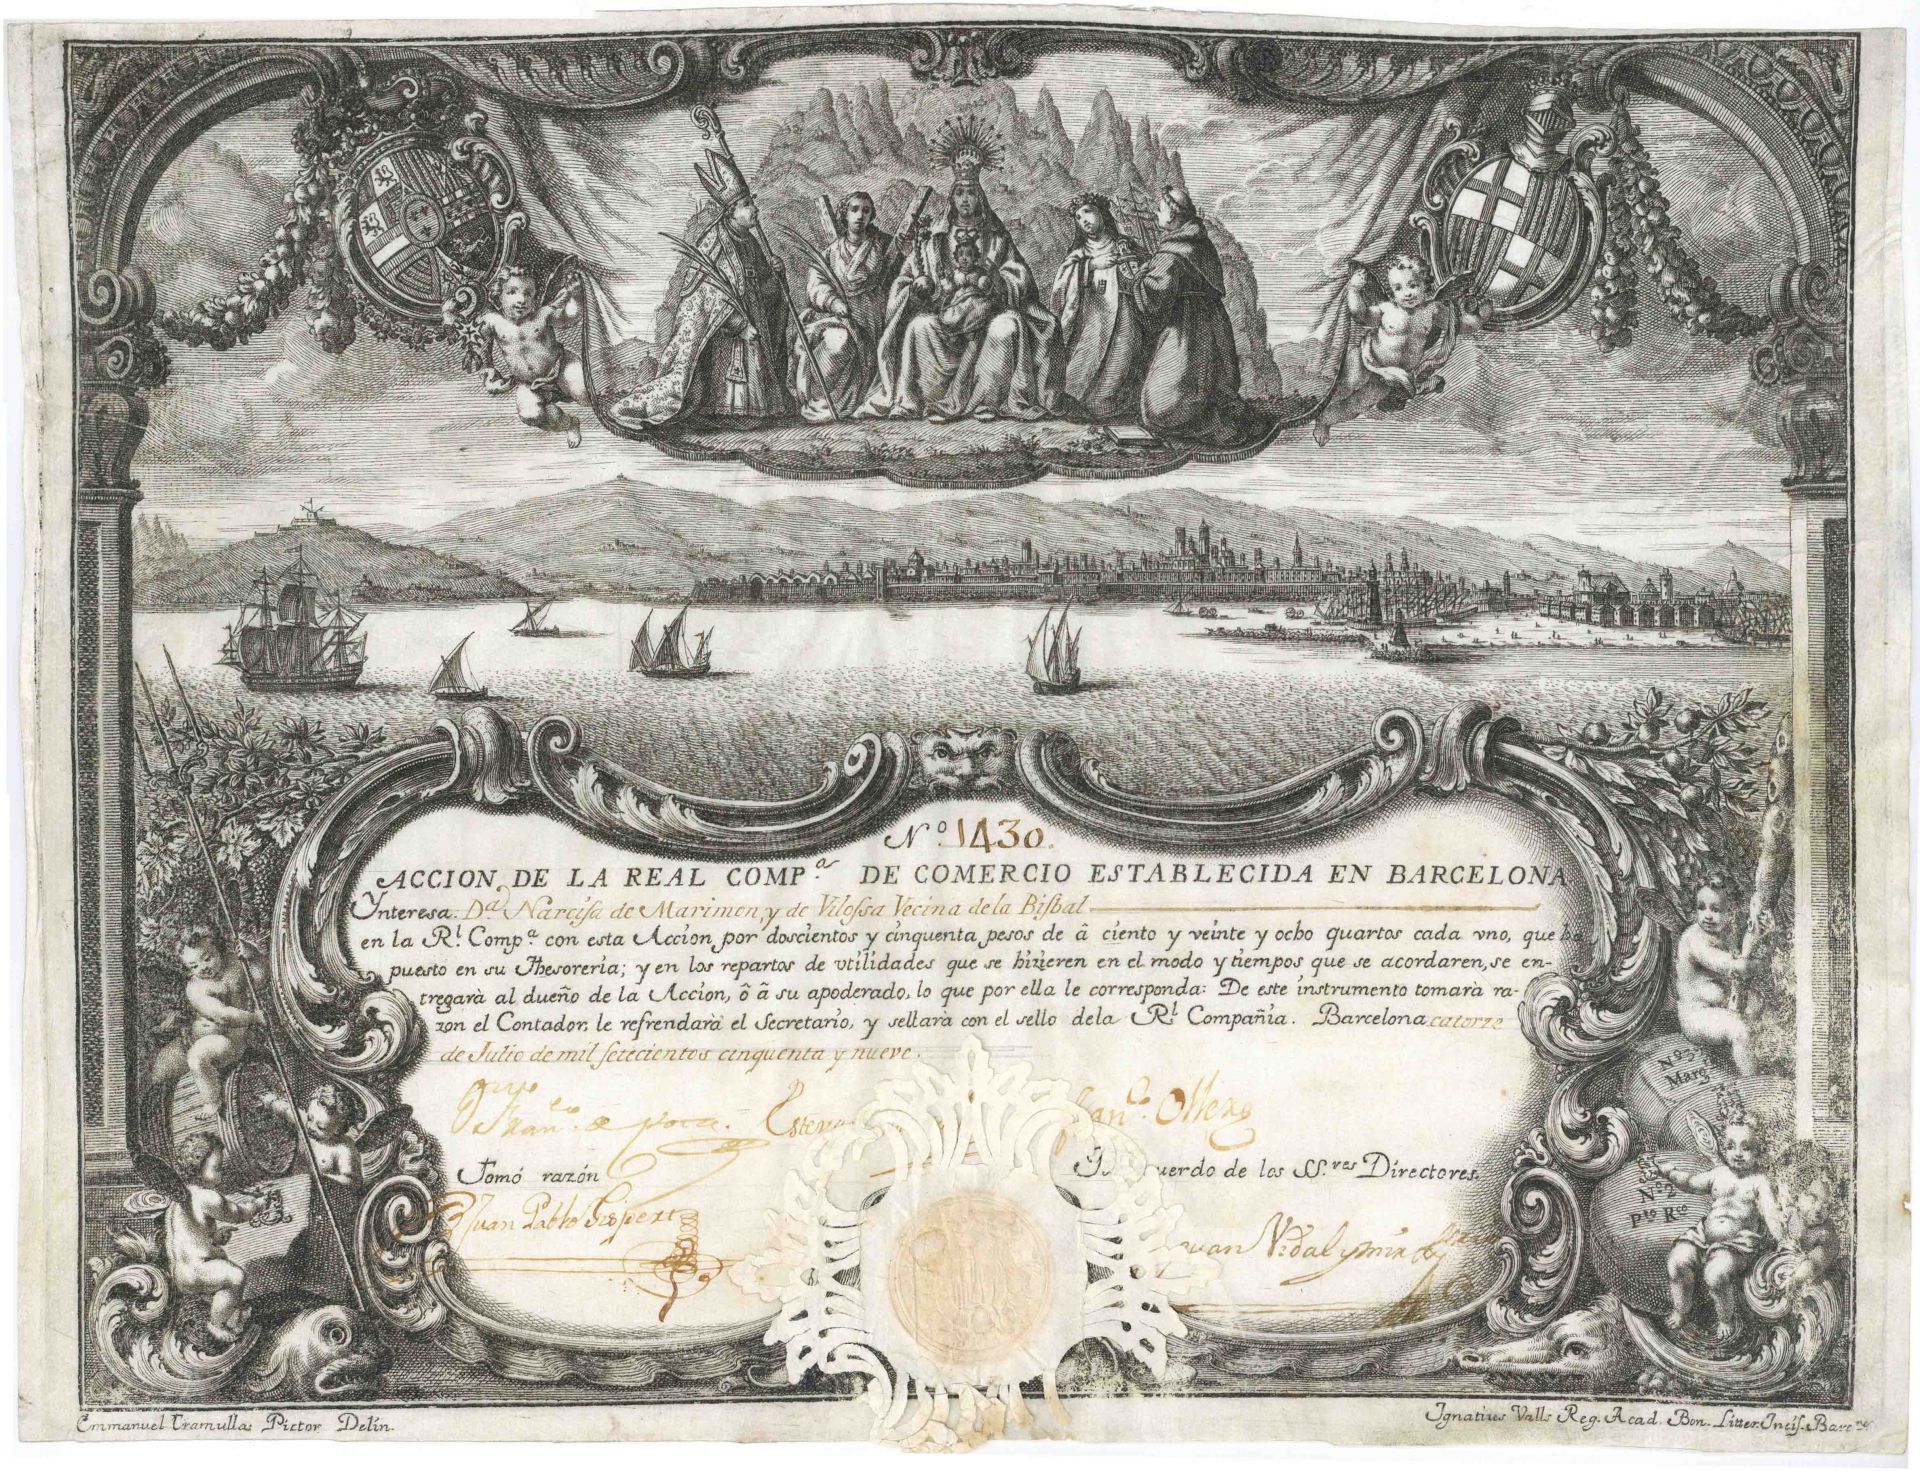 Nº 1430.
ACCION DE LA REAL COMP.ª DE COMERCIO ESTABLECIDA EN BARCELONA
Ynteresa Dª Narcisa de Marimon, y de Vilossa Vecina de la Bisbal
en la Rˡ Compª con esta Accion por doscientos y cinquenta pesos de â ciento y veinte y ocho quartos cada vno, que ha
puesto en su Thesoreria; y en los repartos de vtilidades que se hizieren en el modo y tiempos que se acordaren, se en-
tregarà al dueño de la Accion, ô â su apoderado, lo que por ella le corresponda: De este instrumento tomarà ra-
zon el Contador, le refrendarà el Secretario, y sellarà con el sello dela Rˡ Compañia. Barcelona catorze
de Julio de mil setecientos cinquenta y nueve.
Estevan Franco Ollero
Tomó razón
Acuerdo de los SS.res Directores.
Juan Pablo Gispert
Juan Vidal y Mir
Nº 3
Marg
Nº 2
Pto Rco
Emmanuel Tramullas Pictor Delin.
Ignatius Valls Reg. Acad. Bon. Litter. Incis. Barc.ne